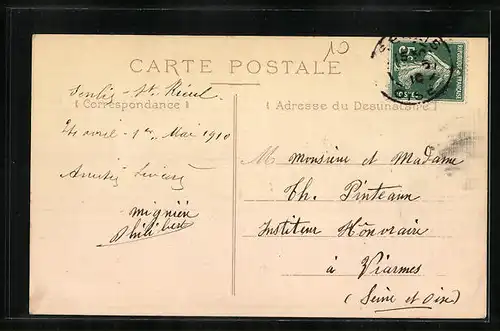 10
CARTE POSTALE
Correspondance
Adresse du Destinataire
Senlis - St. Rieul
24 avril - 1er Mai 1910
Amitiés
Mignien
Philibert
M Monsieur et Madame
Th. Pinteaux
Instituteur Honoraire
à Viarmes
(Seine et Oise)
5c